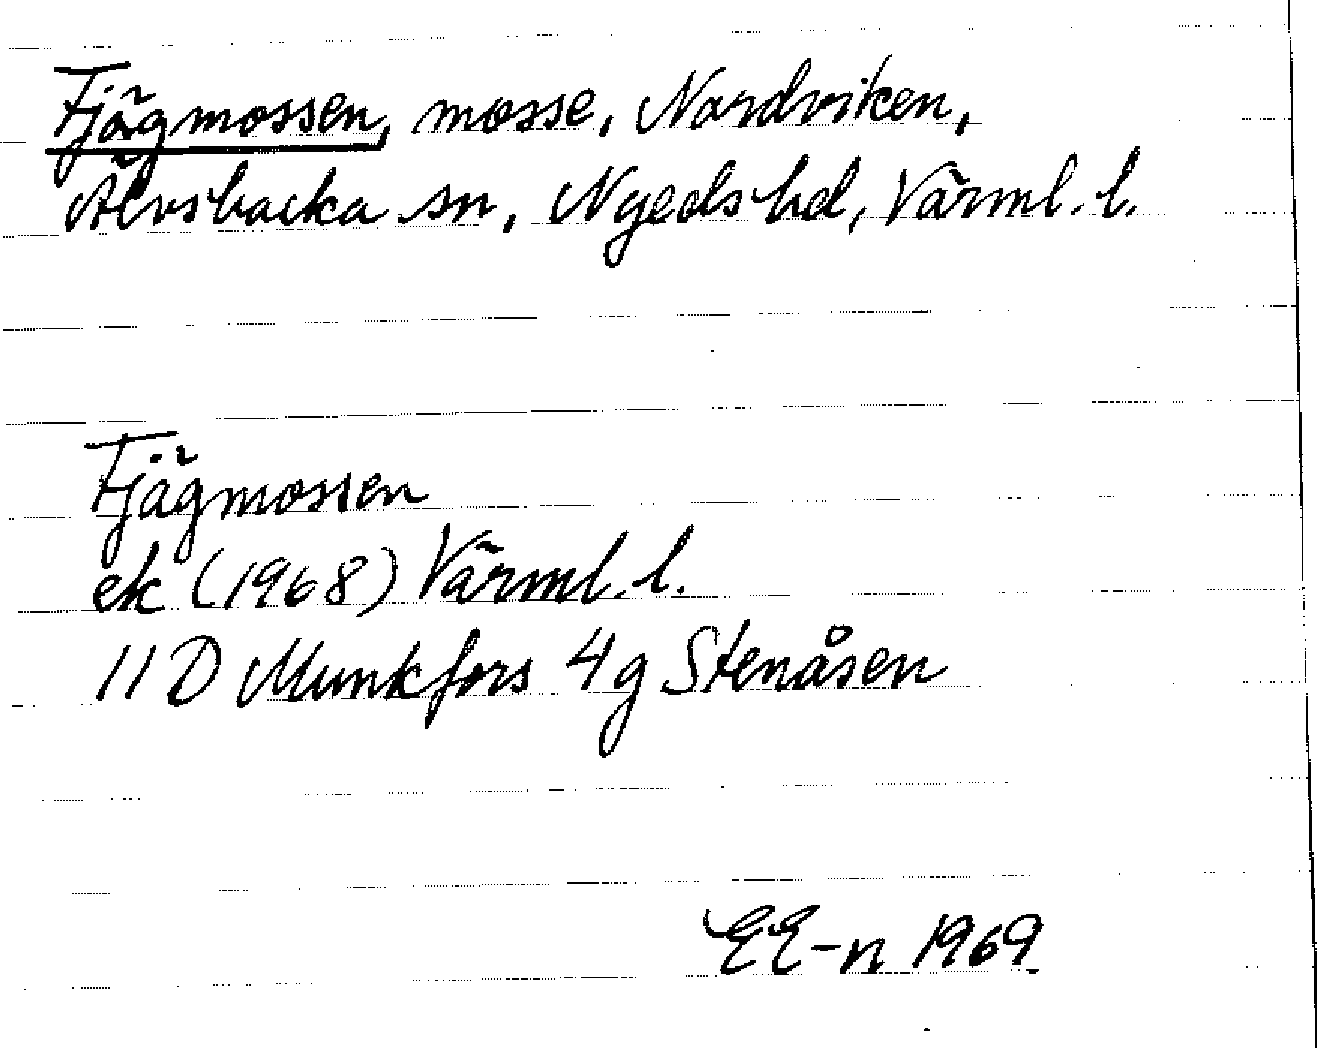 Fjägmossen, mosse, Nordviken,
Älvsbacka sn, Nyeds hd, Värml. l.
Fjägmossen
ek (1968) Värml. l.
11 D Munkfors 4g Stenåsen
EE-n 1969